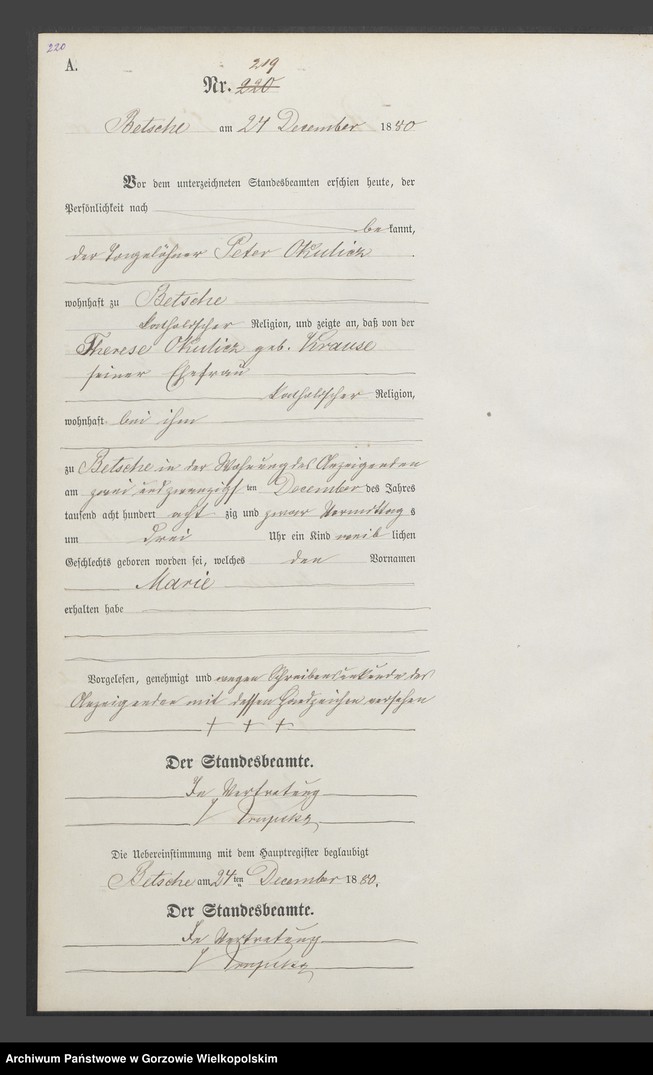 220
A.
219
Nr. 220
Betsche am 24 December 1880
Vor dem unterzeichneten Standesbeamten erschien heute, der
Persönlichkeit nach
bekannt,
der Tagelöhner Peter Okulicz
wohnhaft zu Betsche
katholischer Religion, und zeigte an, daß von der
Therese Okulicz geb. Krause
seiner Ehefrau
katholischer Religion,
wohnhaft bei ihm
zu Betsche in der Wohnung des Anzeigenden
am zwei und zwanzigsten December des Jahres
tausend acht hundert achtzig und zwar Vormittags
um drei Uhr ein Kind weiblichen
Geschlechts geboren worden sei, welches den Vornamen
Marie
erhalten habe
Vorgelesen, genehmigt und wegen Schreibensunkunde des
Anzeigenden mit dessen Handzeichen versehen
† † †
Der Standesbeamte.
In Vertretung
Die Uebereinstimmung mit dem Hauptregister beglaubigt
Betsche am 24ten December 1880.
Der Standesbeamte.
In Vertretung
Archiwum Państwowe w Gorzowie Wielkopolskim